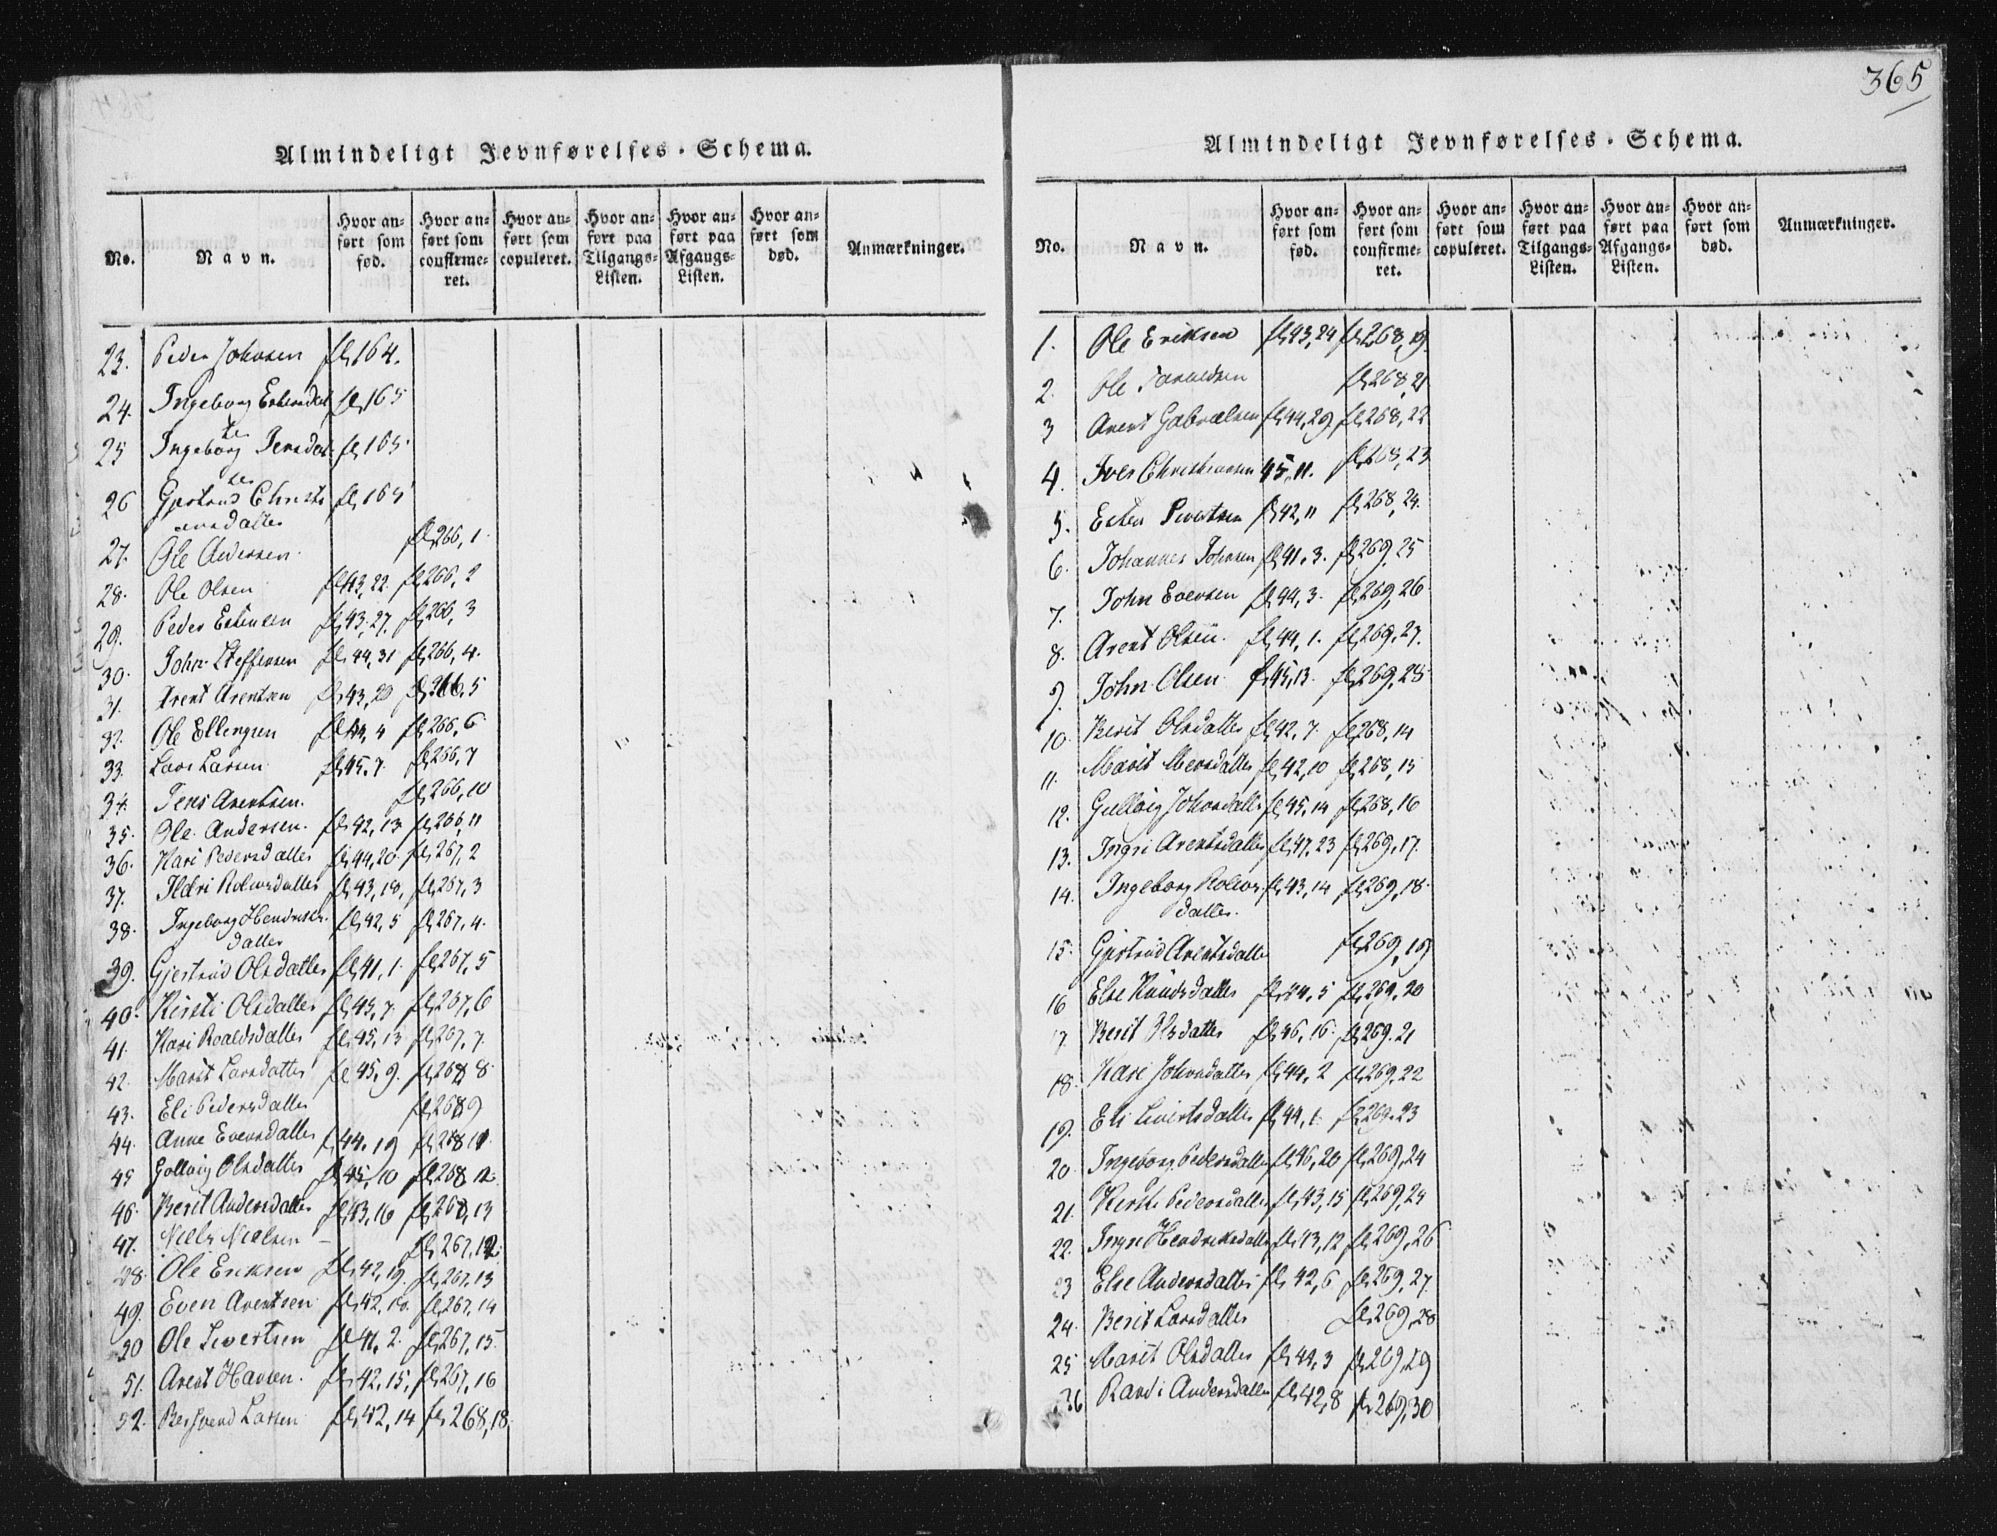 365
Almindeligt Jevnførelses-Schema.
No.
Navn.
Hvor anført som fød.
Hvor anført som confirmeret.
Hvor anført som copuleret.
Hvor anført paa Tilgangs-Listen.
Hvor anført paa Afgangs-Listen.
Hvor anført som død.
Anmærkninger.
23. Peder Johnsen fl 164.
24. Ingeborg Estensdat fl 165
ter
25 Ingeborg Jensdat fl 165.
ter
26 Gjertrud Christi fl 165
ansdatter
27. Ole Andersen. fl 266, 1.
28. Ole Olsen fl 43, 22. fl 266, 2
29. Peder Estensen fl 43, 27. fl 266, 3
30. John Steffensen fl 44, 31 fl 266, 4.
31. Arent Arentsen fl 43, 20 fl 266, 5
32. Ole Ellingsen fl 44, 4 fl 266, 6
33. Lars Larsen fl 45, 7. fl 266, 7
34. Jens Arentsen. fl 266, 10
35. Ole Andersen. fl 42, 13 fl 266, 11
36. Kari Pedersdatter fl 44, 20. fl 267, 2
37. Ildri Rolvsdatter fl 43, 18, fl 267, 3
38. Ingeborg Hendriks fl 42, 5 fl 267, 4.
datter
39. Gjertrud Olsdatter fl 41, 1. fl 267, 5
40. Kirsti Olsdatter fl 45, 7. fl 267, 6
41. Kari Roaldsdatter fl 45, 13 fl 267, 7.
42. Marit Larsdatter fl 45, 9. fl 268 8
43. Eli Pedersdatter fl 268 9
44. Anne Evensdatter fl 44, 19 fl 268 11.
45 Gollaug Olsdatter fl 45, 10 fl 268 12.
46. Berit Andersdatter fl 43, 16 fl 268, 13
47. Niels Nielsen – fl 267, 12.
48. Ole Eriksen fl 42, 19. fl 267, 13
49. Even Arentsen fl 42, 10. fl 267, 14
50 Ole Sivertsen fl 41, 2. fl 267, 15.
51. Arent Hansen. fl 42, 15, fl 267, 16
52. Bersvend Larsen fl 42, 14 fl 268, 18.
Almindeligt Jevnførelses-Schema.
No.
Navn.
Hvor anført som fød.
Hvor anført som confirmeret.
Hvor anført som copuleret.
Hvor anført paa Tilgangs-Listen.
Hvor anført paa Afgangs-Listen.
Hvor anført som død.
Anmærkninger.
1. Ole Eriksen fl 43, 24 fl 268, 19.
2. Ole fl 268, 21
3 Arent Gabrielsen fl 44, 29 fl 268, 22
4. Iver Christiansen 45, 11. fl 268, 23
5. Esten Sivertsen fl 42, 11 fl 268, 24.
6. Johannes Johnsen fl 41, 3. fl 269, 25
7. John Evensen fl 44, 3. fl 269, 26
8. Arent Olsen. fl 44, 1. fl 269, 27.
9. John Olsen fl 45, 13. fl 269, 28
10. Berit Olsdatter fl 42, 7. fl 268, 14
11. Marit fl 42, 10 fl 268, 15
12. Gullaug Johnsdatter fl 45, 14 fl 268, 16
13. Ingri Arentsdatter fl 47, 23 fl 269, 17.
14. Ingeborg Rolvs fl 43, 14 fl 269, 18.
datter.
15. Gjertrud Arentsdatter fl 269, 19
16 Else Knudsdatter fl 44, 5 fl 269, 20
17 Berit Olsdatter fl 46, 16. fl 269. 21
18. Kari Johnsdatter fl 44, 2 fl 269, 22
19. Eli Sivertsdatter fl 44, 1. fl 269, 23
20. Ingeborg Pedersdatter fl 46, 20 fl 269, 24
21. Kirsti Pedersdatter fl 43, 15 fl 269, 25
22. Ingri Hendriksdatter fl 43, 12 fl 269, 26
23 Else Andersdatter fl 42, 6 fl 269, 27.
24. Berit Larsdatter fl 269, 28
25 Marit Olsdatter fl 44, 3 fl 269, 29
26 Randi Andersdatter fl 42, 8 fl 269, 30